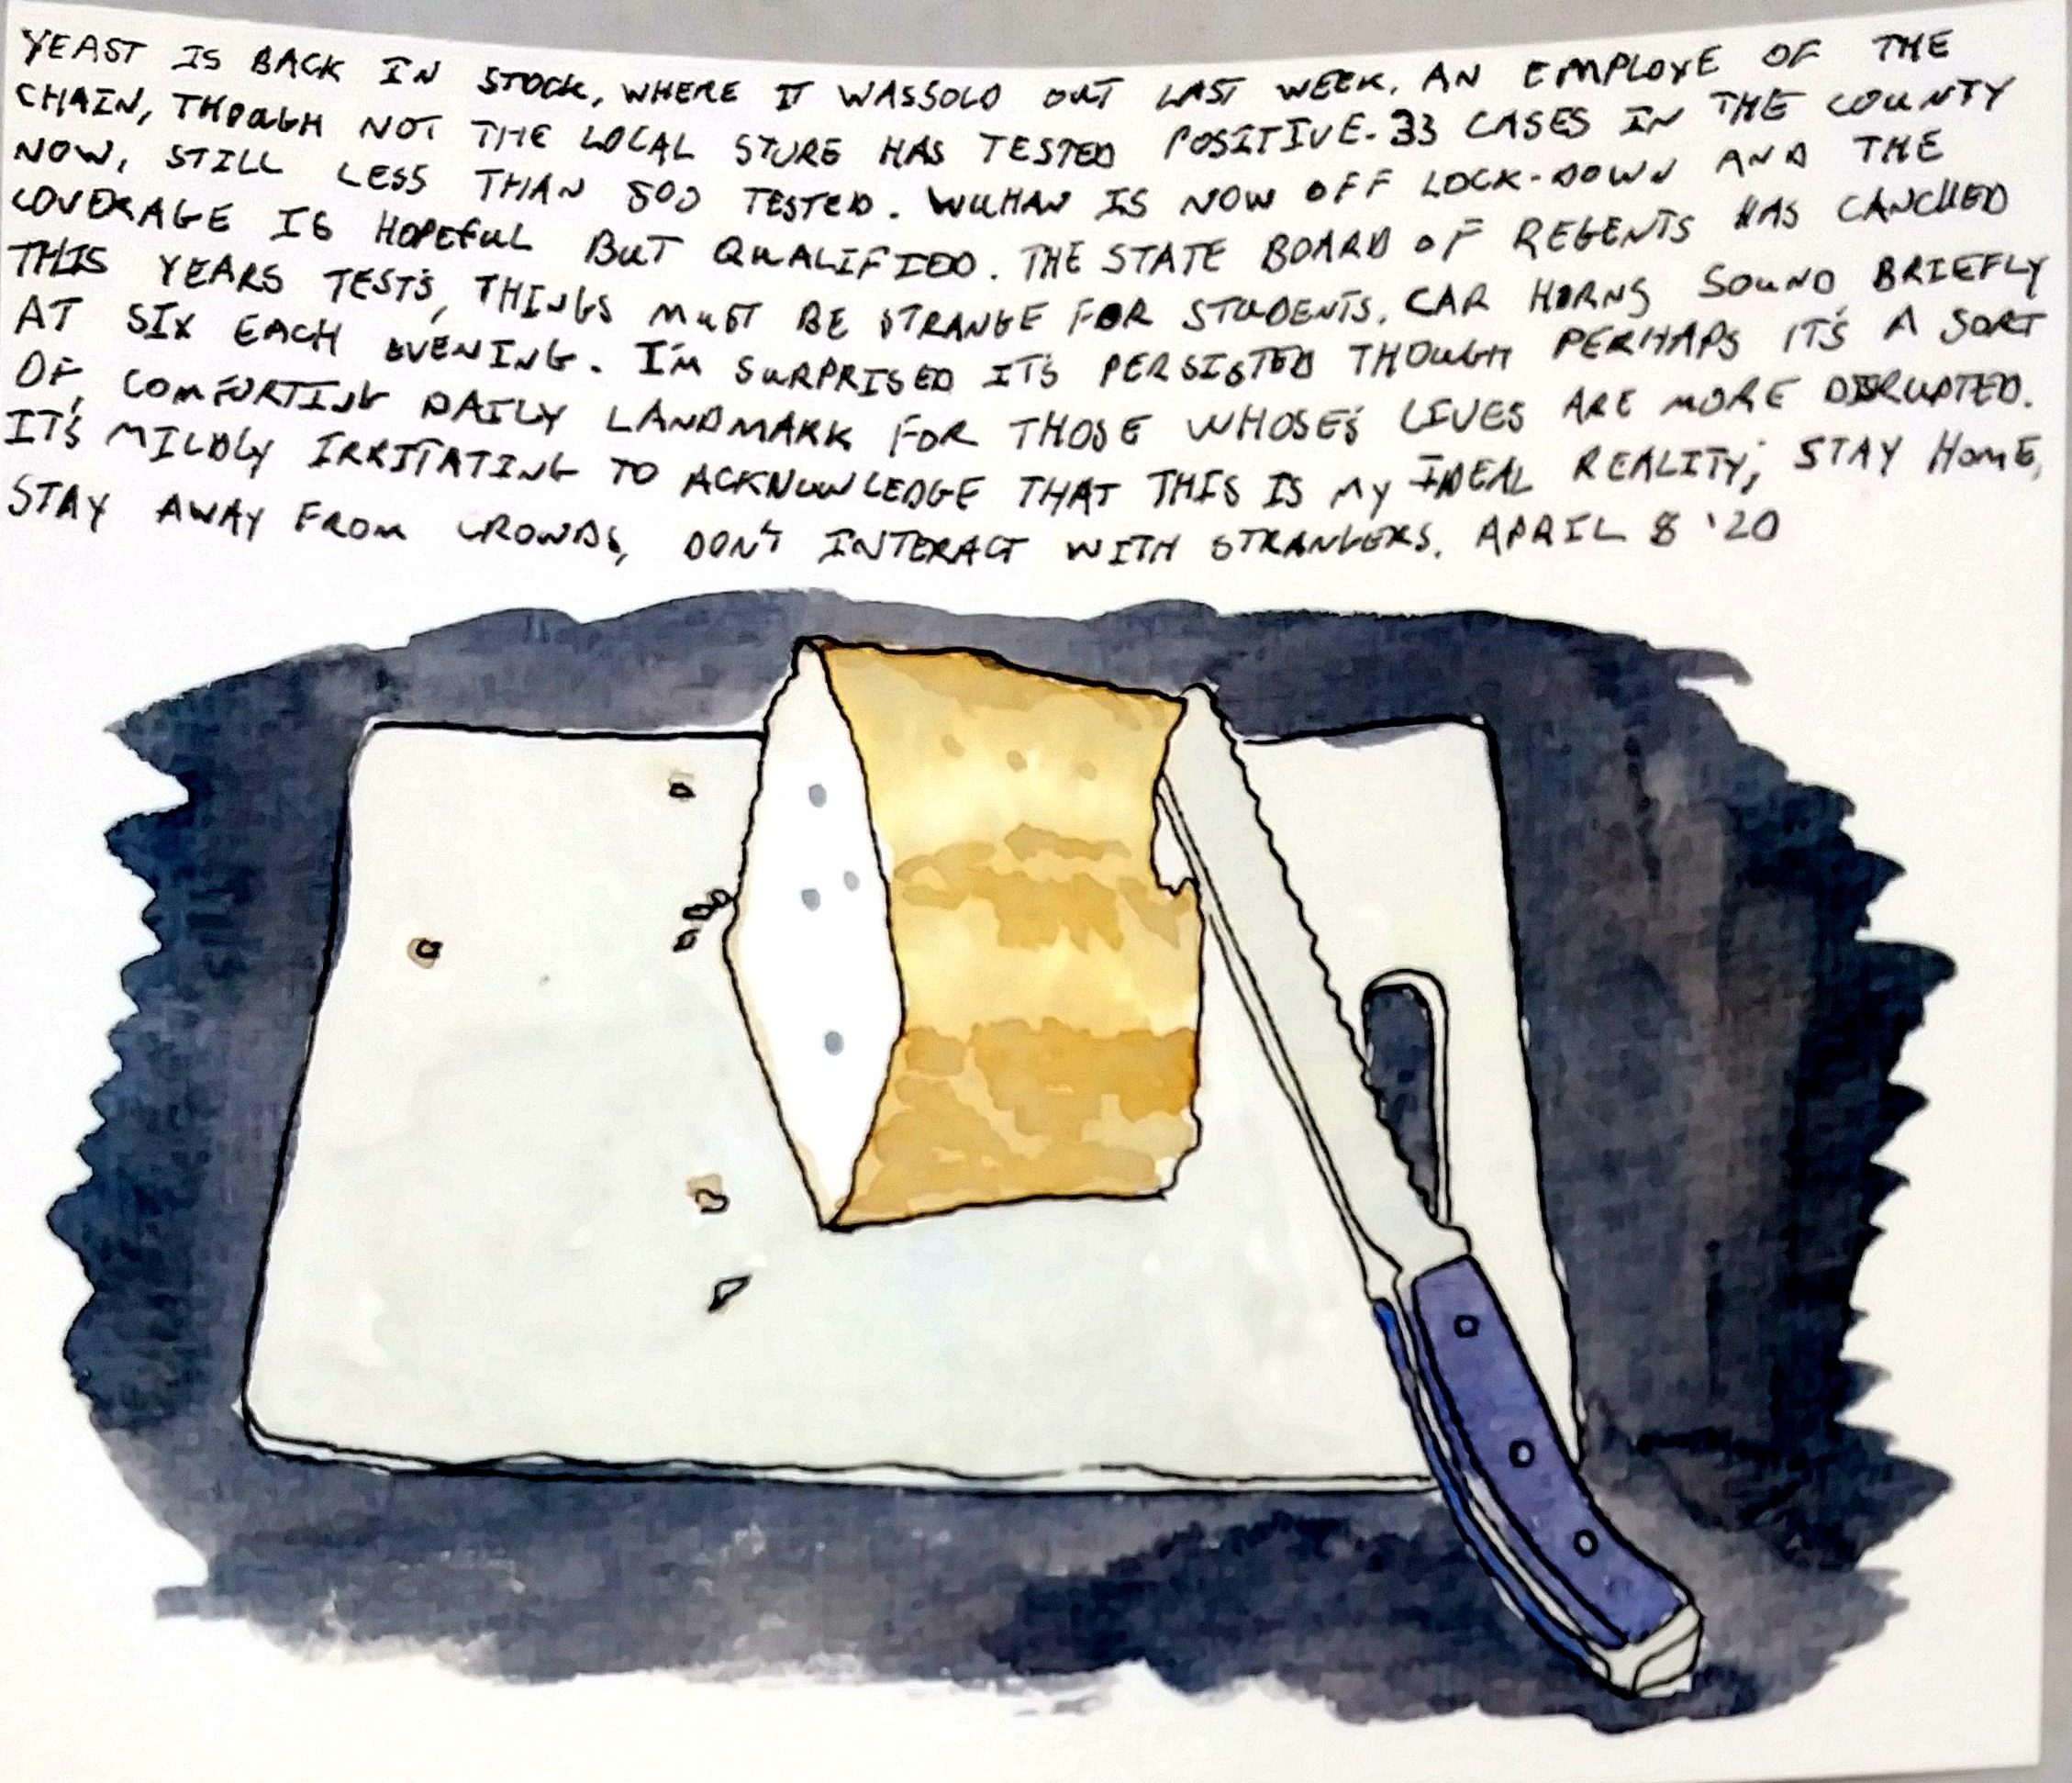 YEAST IS BACK IN STOCK, WHERE IT WASSOLD OUT LAST WEEK. AN EMPLOYE OF THE
CHAIN, THOUGH NOT THE LOCAL STORE HAS TESTED POSITIVE. 33 CASES IN THE COUNTY
NOW, STILL LESS THAN 500 TESTED. WUHAN IS NOW OFF LOCK-DOWN AND THE
COVERAGE IS HOPEFUL BUT QUALIFIED. THE STATE BOARD OF REGENTS HAS CANCLLED
THIS YEARS TEST'S, THINGS MUST BE STRANGE FOR STUDENTS. CAR HORNS SOUND BRIEFLY
AT SIX EACH EVENING. I'M SURPRISED IT'S PERSISTED THOUGH PERHAPS IT'S A SORT
OF, COMFORTING DAILY LANDMARK FOR THOSE WHOSE'S LIVES ARE MORE DISRUPTED.
IT'S MILDLY IRRITATING TO ACKNOWLEDGE THAT THIS IS MY IDEAL REALITY; STAY HOME,
STAY AWAY FROM CROWDS, DON'T INTERACT WITH STRANGERS. APRIL 8 '20